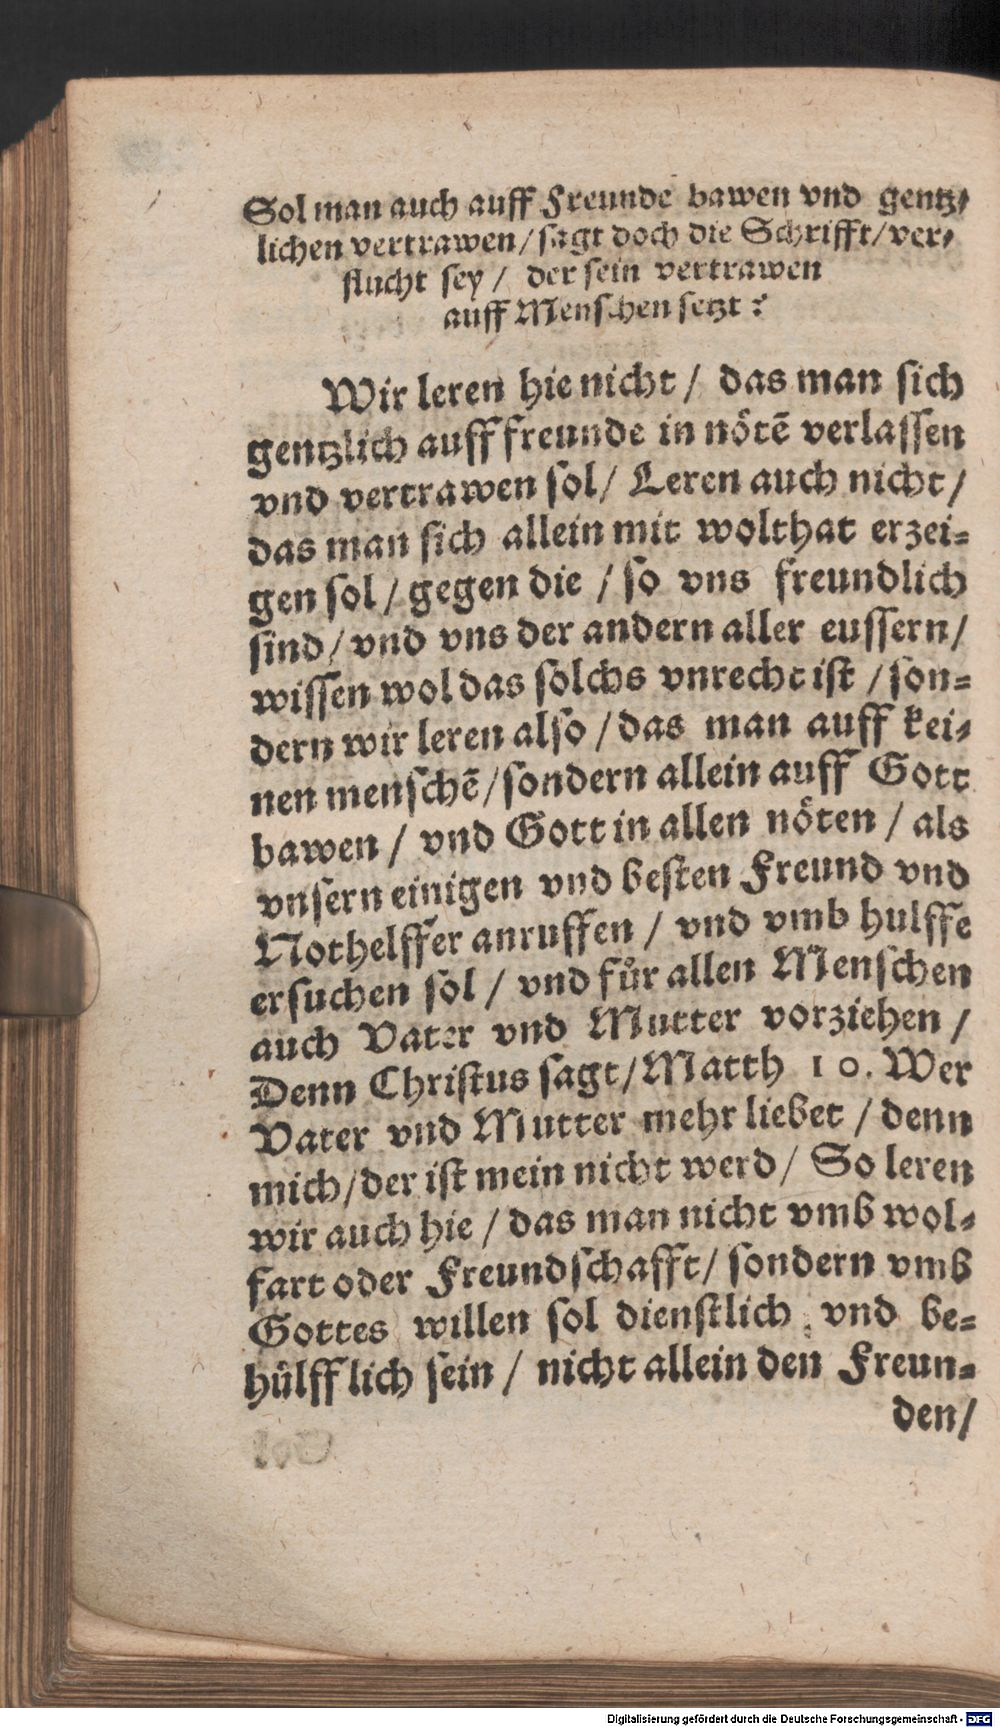 Sol man auch auff Freunde bawen vnd gentz⸗
lichen vertrawen/ sagt doch die Schrifft/ ver⸗
flucht sey / der sein vertrawen
auff Menschen setzt?
Wir leren hie nicht / das man sich
gentzlich auff freunde in nötē verlassen
vnd vertrawen sol/ Leren auch nicht /
das man sich allein mit wolthat erzei⸗
gen sol / gegen die / so vns freundlich
sind / vnd vns der andern aller eussern/
wissen wol das solchs vnrecht ist / son⸗
dern wir leren also / das man auff kei⸗
nen menschē/sondern allein auff Gott
bawen / vnd Gott in allen nöten / als
vnsern einigen vnd besten Freund vnd
Nothelffer anruffen / vnd vmb hulffe
ersuchen sol / vnd fůr allen Menschen
auch Vater vnd Mutter vorziehen /
Denn Christus sagt/ Matth 10. Wer
Vater vnd Mutter mehr liebet / denn
mich/der ist mein nicht werd/ So leren
wir auch hie / das man nicht vmb wol⸗
fart oder Freundschafft/ sondern vmb
Gottes willen sol dienstlich vnd be⸗
hülfflich sein / nicht allein den Freun⸗
den/
Digitalisierung gefördert durch die Deutsche Forschungsgemeinschaft - DFG